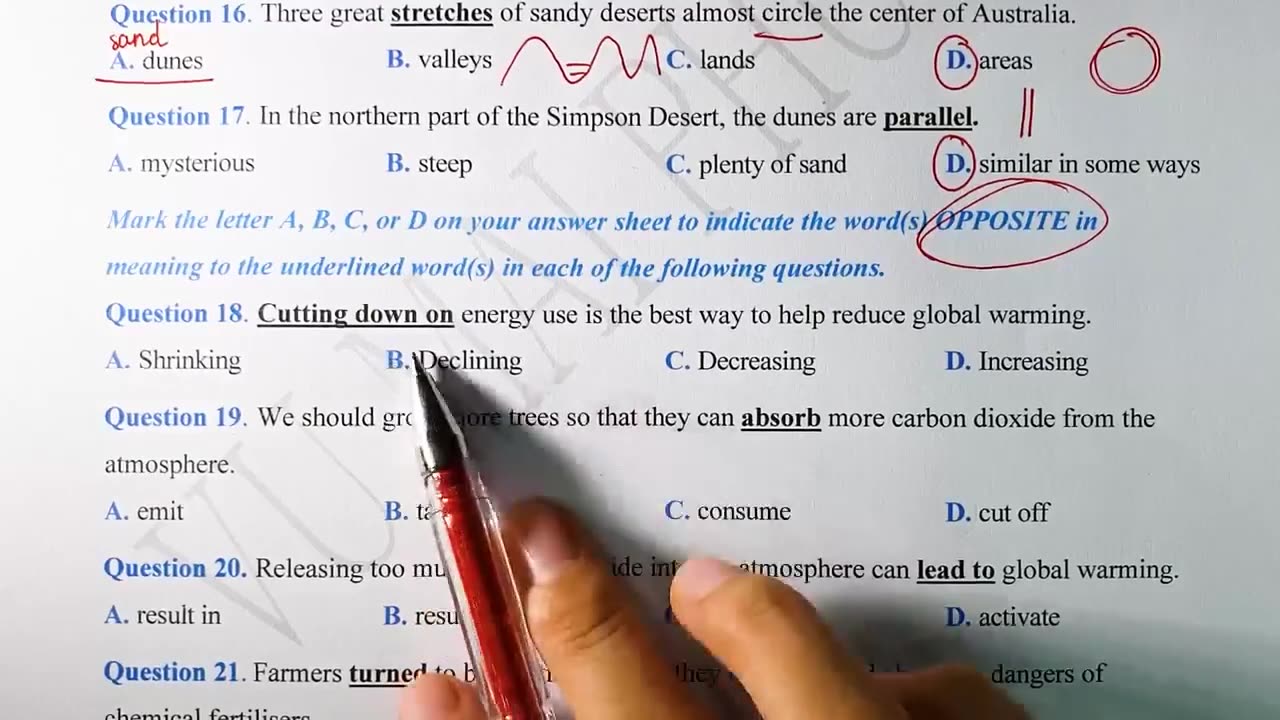 Question 16. Three great stretches of sandy deserts almost circle the center of Australia.
sand
A. dunes B. valleys C. lands D. areas
Question 17. In the northern part of the Simpson Desert, the dunes are parallel.
A. mysterious B. steep C. plenty of sand D. similar in some ways
Mark the letter A, B, C, or D on your answer sheet to indicate the word(s) OPPOSITE in
meaning to the underlined word(s) in each of the following questions.
Question 18. Cutting down on energy use is the best way to help reduce global warming.
A. Shrinking B. Declining C. Decreasing D. Increasing
Question 19. We should trees so that they can absorb more carbon dioxide from the
atmosphere.
A. emit B. C. consume D. cut off
Question 20. Releasing too atmosphere can lead to global warming.
A. result in B. D. activate
Question 21. Farmers turned to they dangers of
chemical fertilisers.